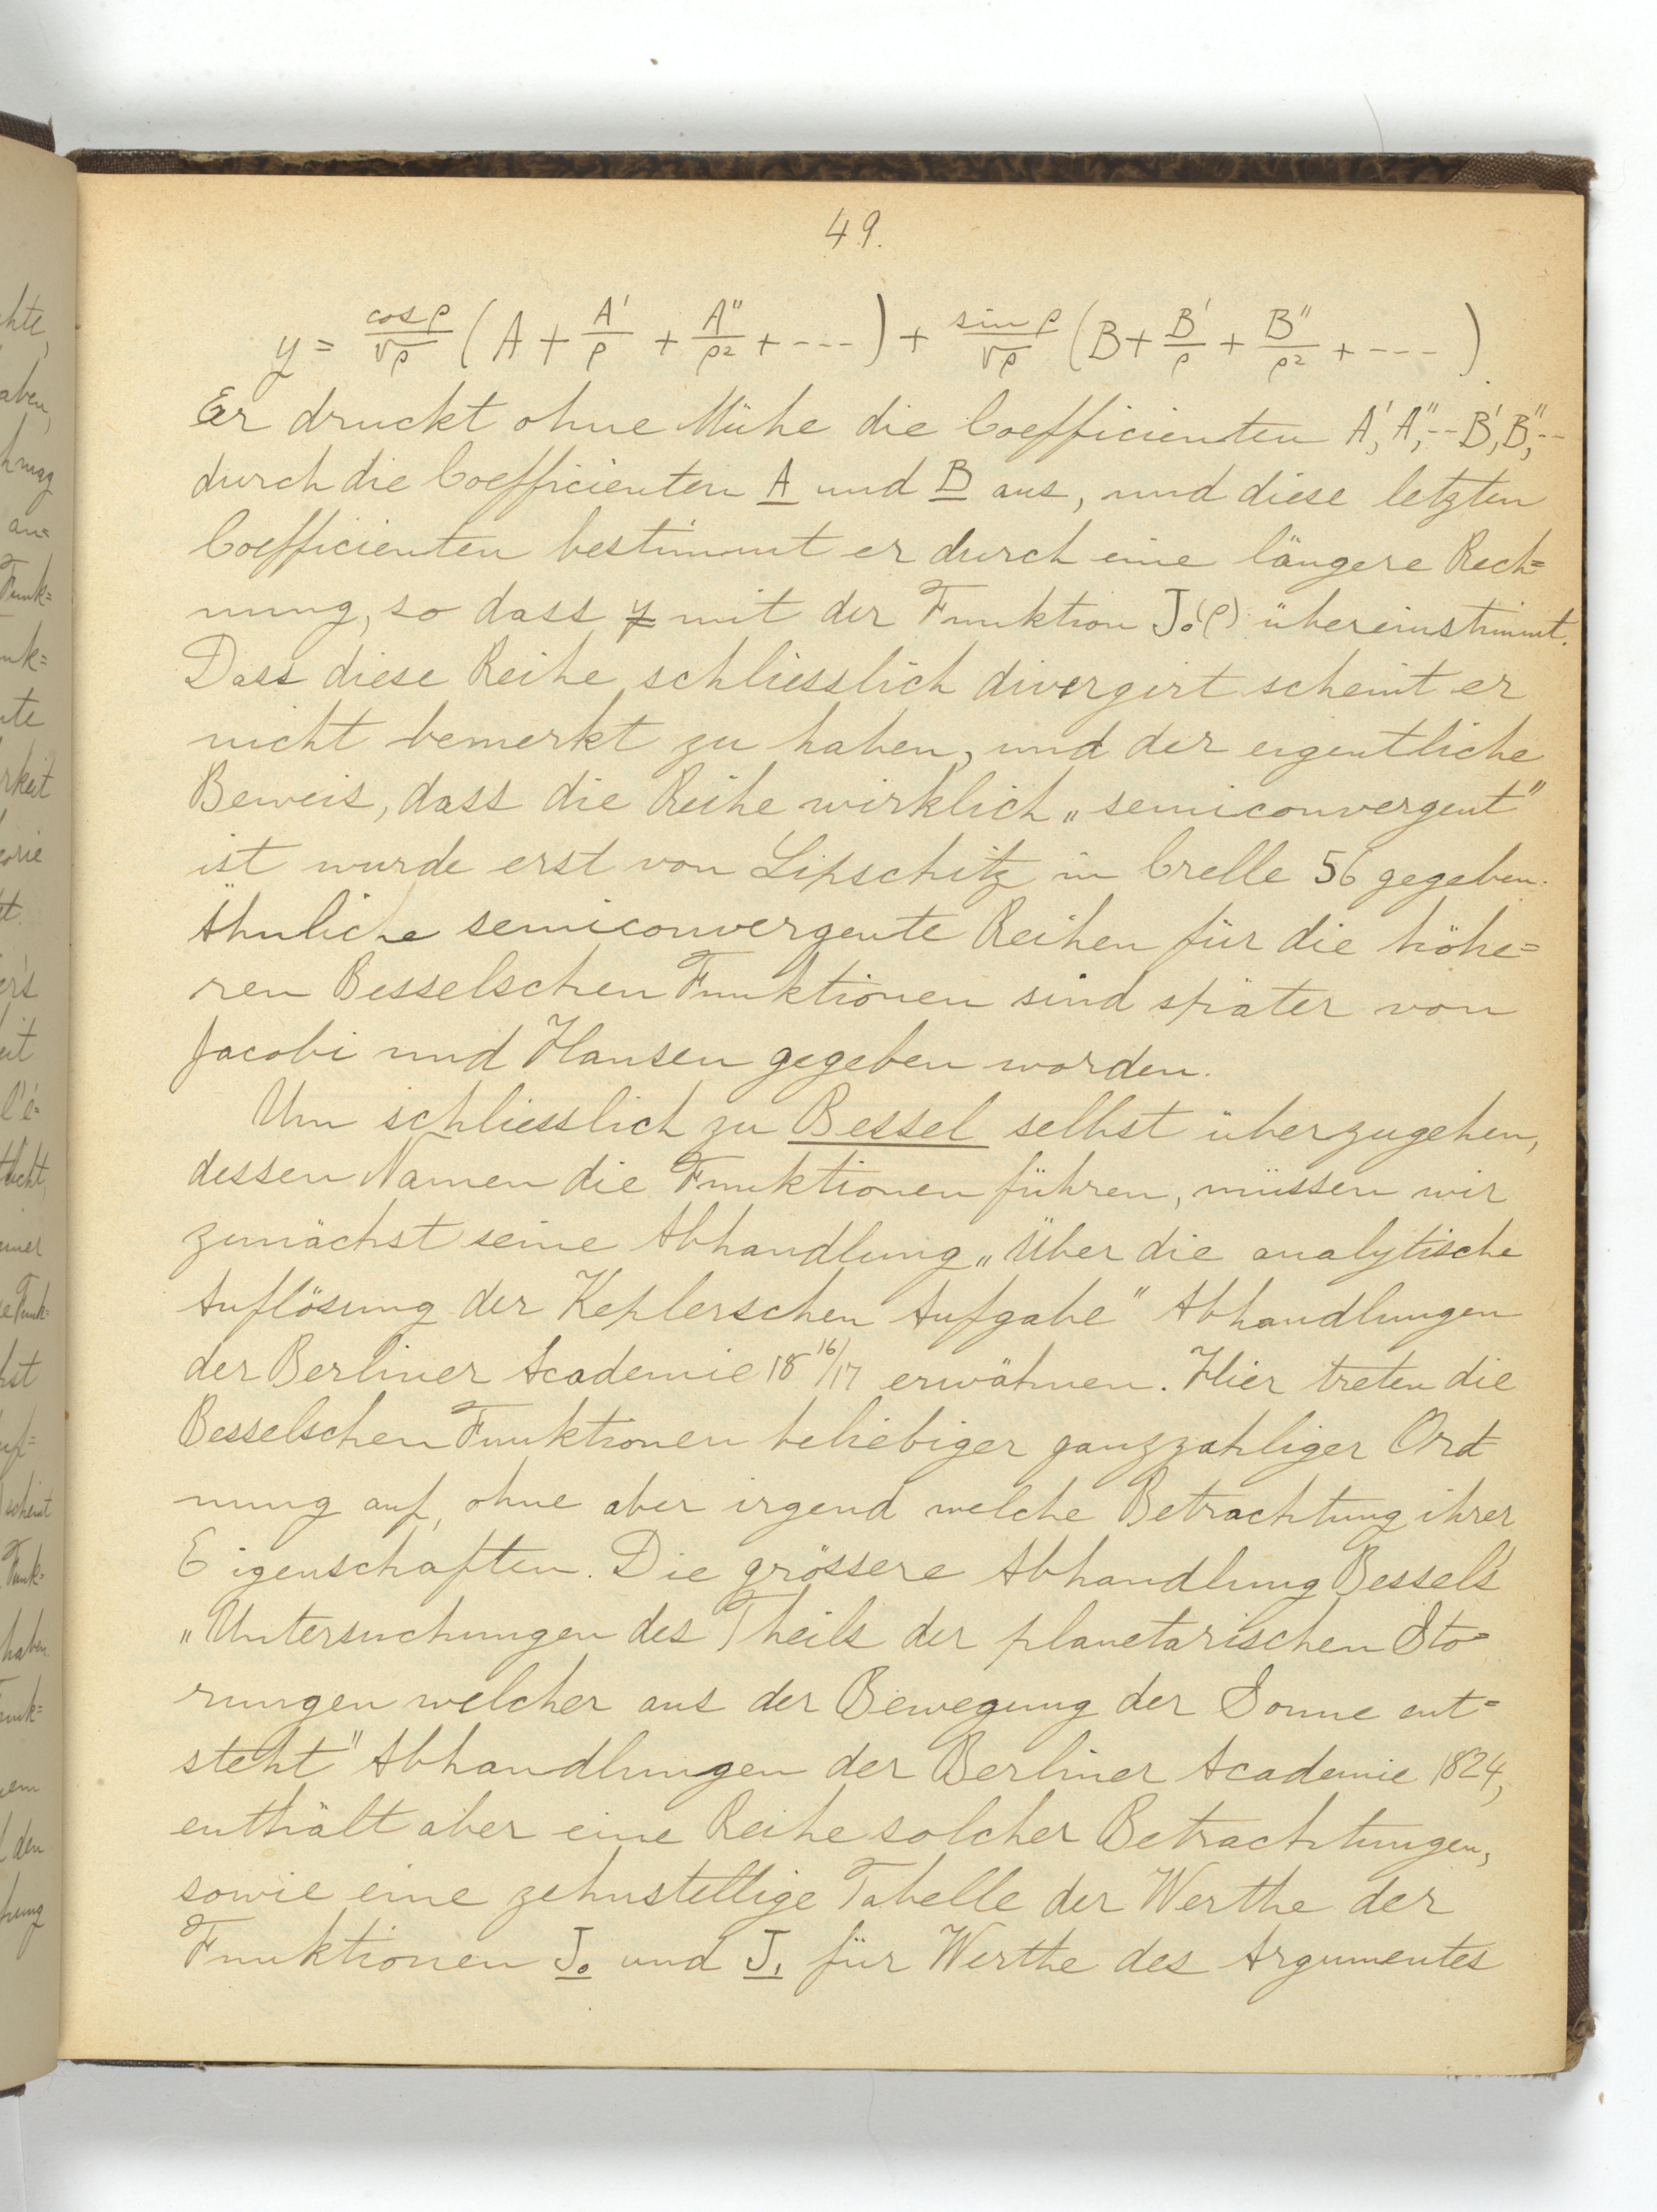 49.
y = cos ρ/√ρ (A + A'/ρ + A''/ρ² + ---) + sin ρ/√ρ (B + B'/ρ + B''/ρ² + ---)
Er druckt ohne Mühe die Coefficienten A', A'', -- B', B'', --
durch die Coefficienten A und B aus, und diese letzten
Coefficienten bestimmt er durch eine längere Rech=
nung, so dass y mit der Funktion J₀(ρ) übereinstimmt.
Dass diese Reihe schliesslich divergirt scheint er
nicht bemerkt zu haben, und der eigentliche
Beweis, dass die Reihe wirklich „semiconvergent"
ist wurde erst von Lipschitz in Crelle 56 gegeben.
Ähnliche semiconvergente Reihen für die höhe=
ren Besselschen Funktionen sind später von
Jacobi und Hansen gegeben worden.
Um schliesslich zu Bessel selbst überzugehen,
dessen Namen die Funktionen führen, müssen wir
zunächst seine Abhandlung „Über die analytische
Auflösung der Keplerschen Aufgabe" Abhandlungen
der Berliner Academie 18 16/17 erwähnen. Hier treten die
Besselschen Funktionen beliebiger ganzzahliger Ord=
nung auf, ohne aber irgend welche Betrachtung ihrer
Eigenschaften. Die grössere Abhandlung Bessel's
„Untersuchungen des Theils der planetarischen Sto=
rungen welcher aus der Bewegung der Sonne ent=
steht" Abhandlungen der Berliner Academie 1824,
enthält aber eine Reihe solcher Betrachtungen,
sowie eine zehnstellige Tabelle der Werthe der
Funktionen J₀ und J₁ für Werthe des Argumentes